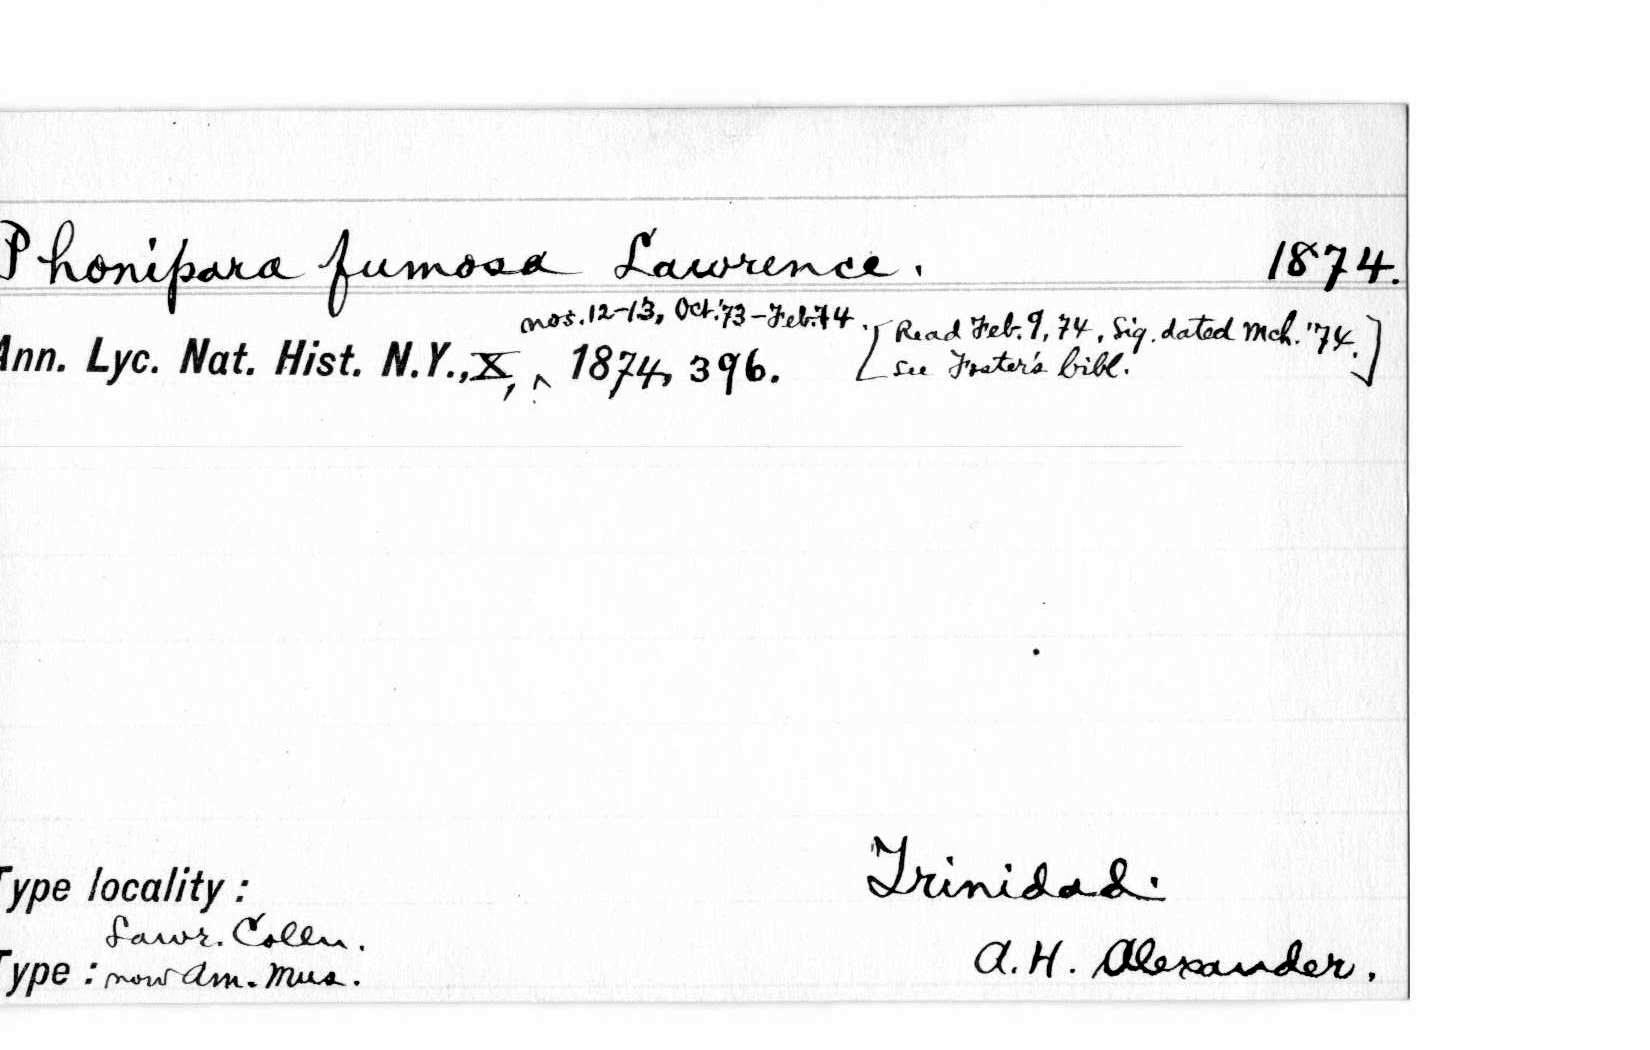 Phonipara fumosa Lawrence. 1874.
nos. 12-13, Oct. '73-Feb. 74.
Ann. Lyc. Nat. Hist. N.Y., X, ^ 1874, 396. [Read Feb. 9, 74, Sig. dated Mch. '74.
See Foster's bibl.]
Type locality: Trinidad.
Lawr. Colln.
Type: now Am. Mus. A. H. Alexander.